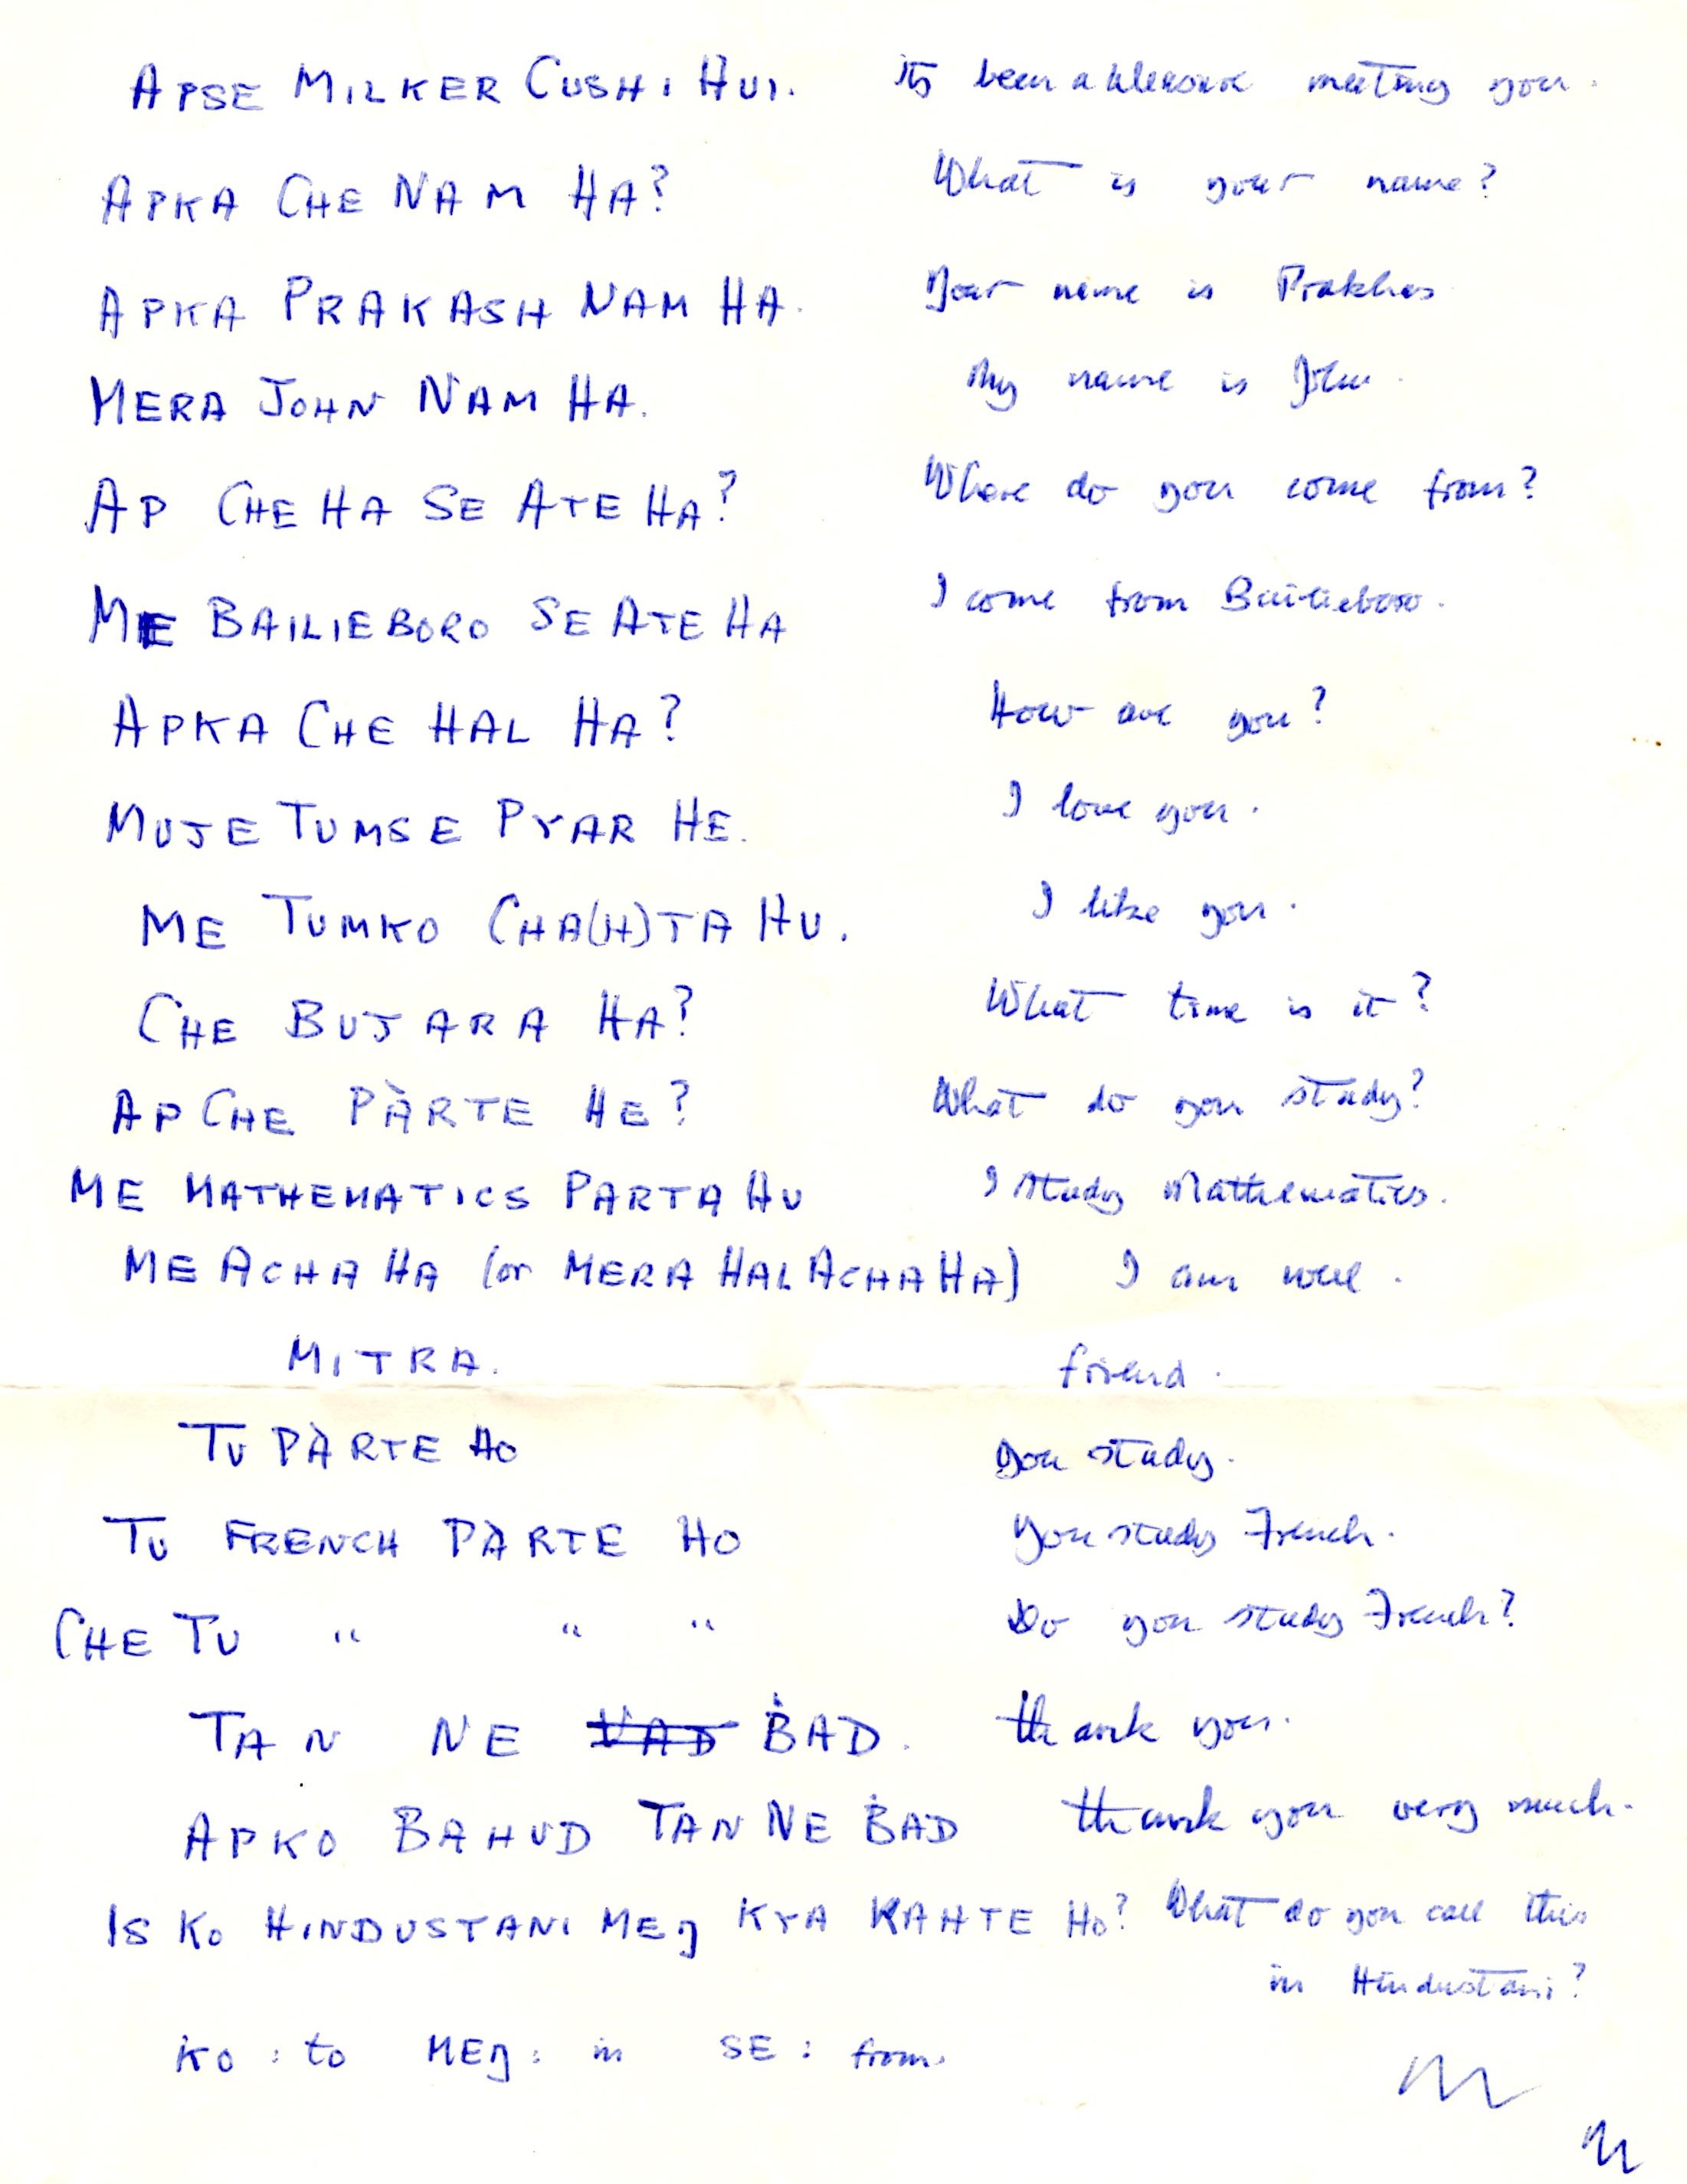 APSE MILKER CUSHI HUI. its been a pleasure meeting you.
APKA CHE NAM HA? What is your name?
APKA PRAKASH NAM HA. Your name is Prakhas
MERA JOHN NAM HA. My name is John.
AP CHE HA SE ATE HA? Where do you come from?
ME BAILIEBORO SE ATE HA I come from Bailieboro.
APKA CHE HAL HA? How are you?
MUJE TUMSE PYAR HE. I love you.
ME TUMKO CHA(H)TA HU. I like you.
CHE BUJARA HA? What time is it?
AP CHE PÀRTE HE? What do you study?
ME MATHEMATICS PARTA HU I study Mathematics.
ME ACHA HA (or MERA HAL ACHA HA) I am well.
MITRA. friend.
TU PÀRTE HO you study.
TU FRENCH PÀRTE HO You study French.
CHE TU " " " Do you study French?
TAN NE VAD ḂAD. thank you.
APKO BAHUD TAN NE ḂAD thank you very much.
IS KO HINDUSTANI MEŋ KYA KAHTE HO? What do you call this
in Hindustani?
KO : to MEŋ : in SE : from.